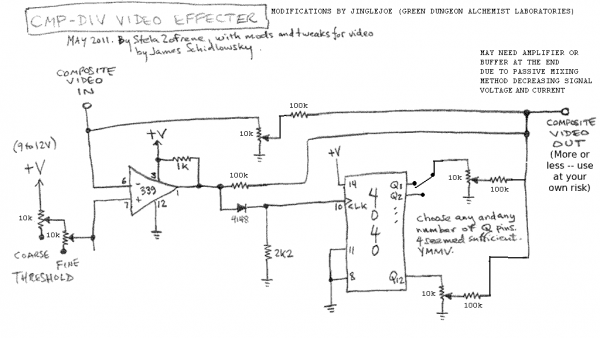 CMP-DIV VIDEO EFFECTER
MODIFICATIONS BY JINGLEJOE (GREEN DUNGEON ALCHEMIST LABORATORIES)
MAY 2011. By Stela Zofrene, with mods and tweaks for video
by James Schidlowsky.
MAY NEED AMPLIFIER OR
BUFFER AT THE END
DUE TO PASSIVE MIXING
METHOD DECREASING SIGNAL
VOLTAGE AND CURRENT
COMPOSITE
VIDEO
IN
100k
10k
COMPOSITE
VIDEO
OUT
(More or
less -- use
at your
own risk)
(9 to 12V)
+V
+V
3
1k
6
-
339
1
7
+
12
100k
4148
2K2
+V
14
10
CLK
4040
Q1
Q2
11
8
Q12
10k
100k
choose any and any
number of Q pins.
4 seemed sufficient.
YMMV.
10k
100k
10k
10k
COARSE
FINE
THRESHOLD